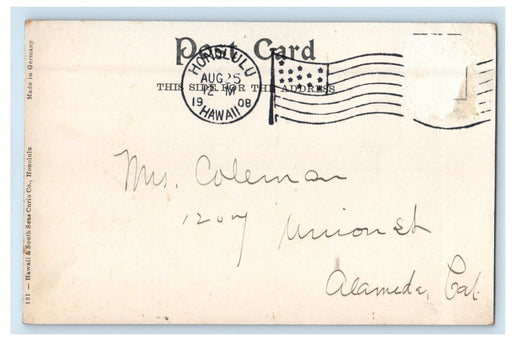 Post Card
THIS SIDE FOR THE ADDRESS
HONOLULU
AUG 25
12 M
1908
HAWAII
Mrs. Coleman
1207 Union St
Alameda, Cal.
Made in Germany
161 — Hawaii & South Seas Curio Co., Honolulu